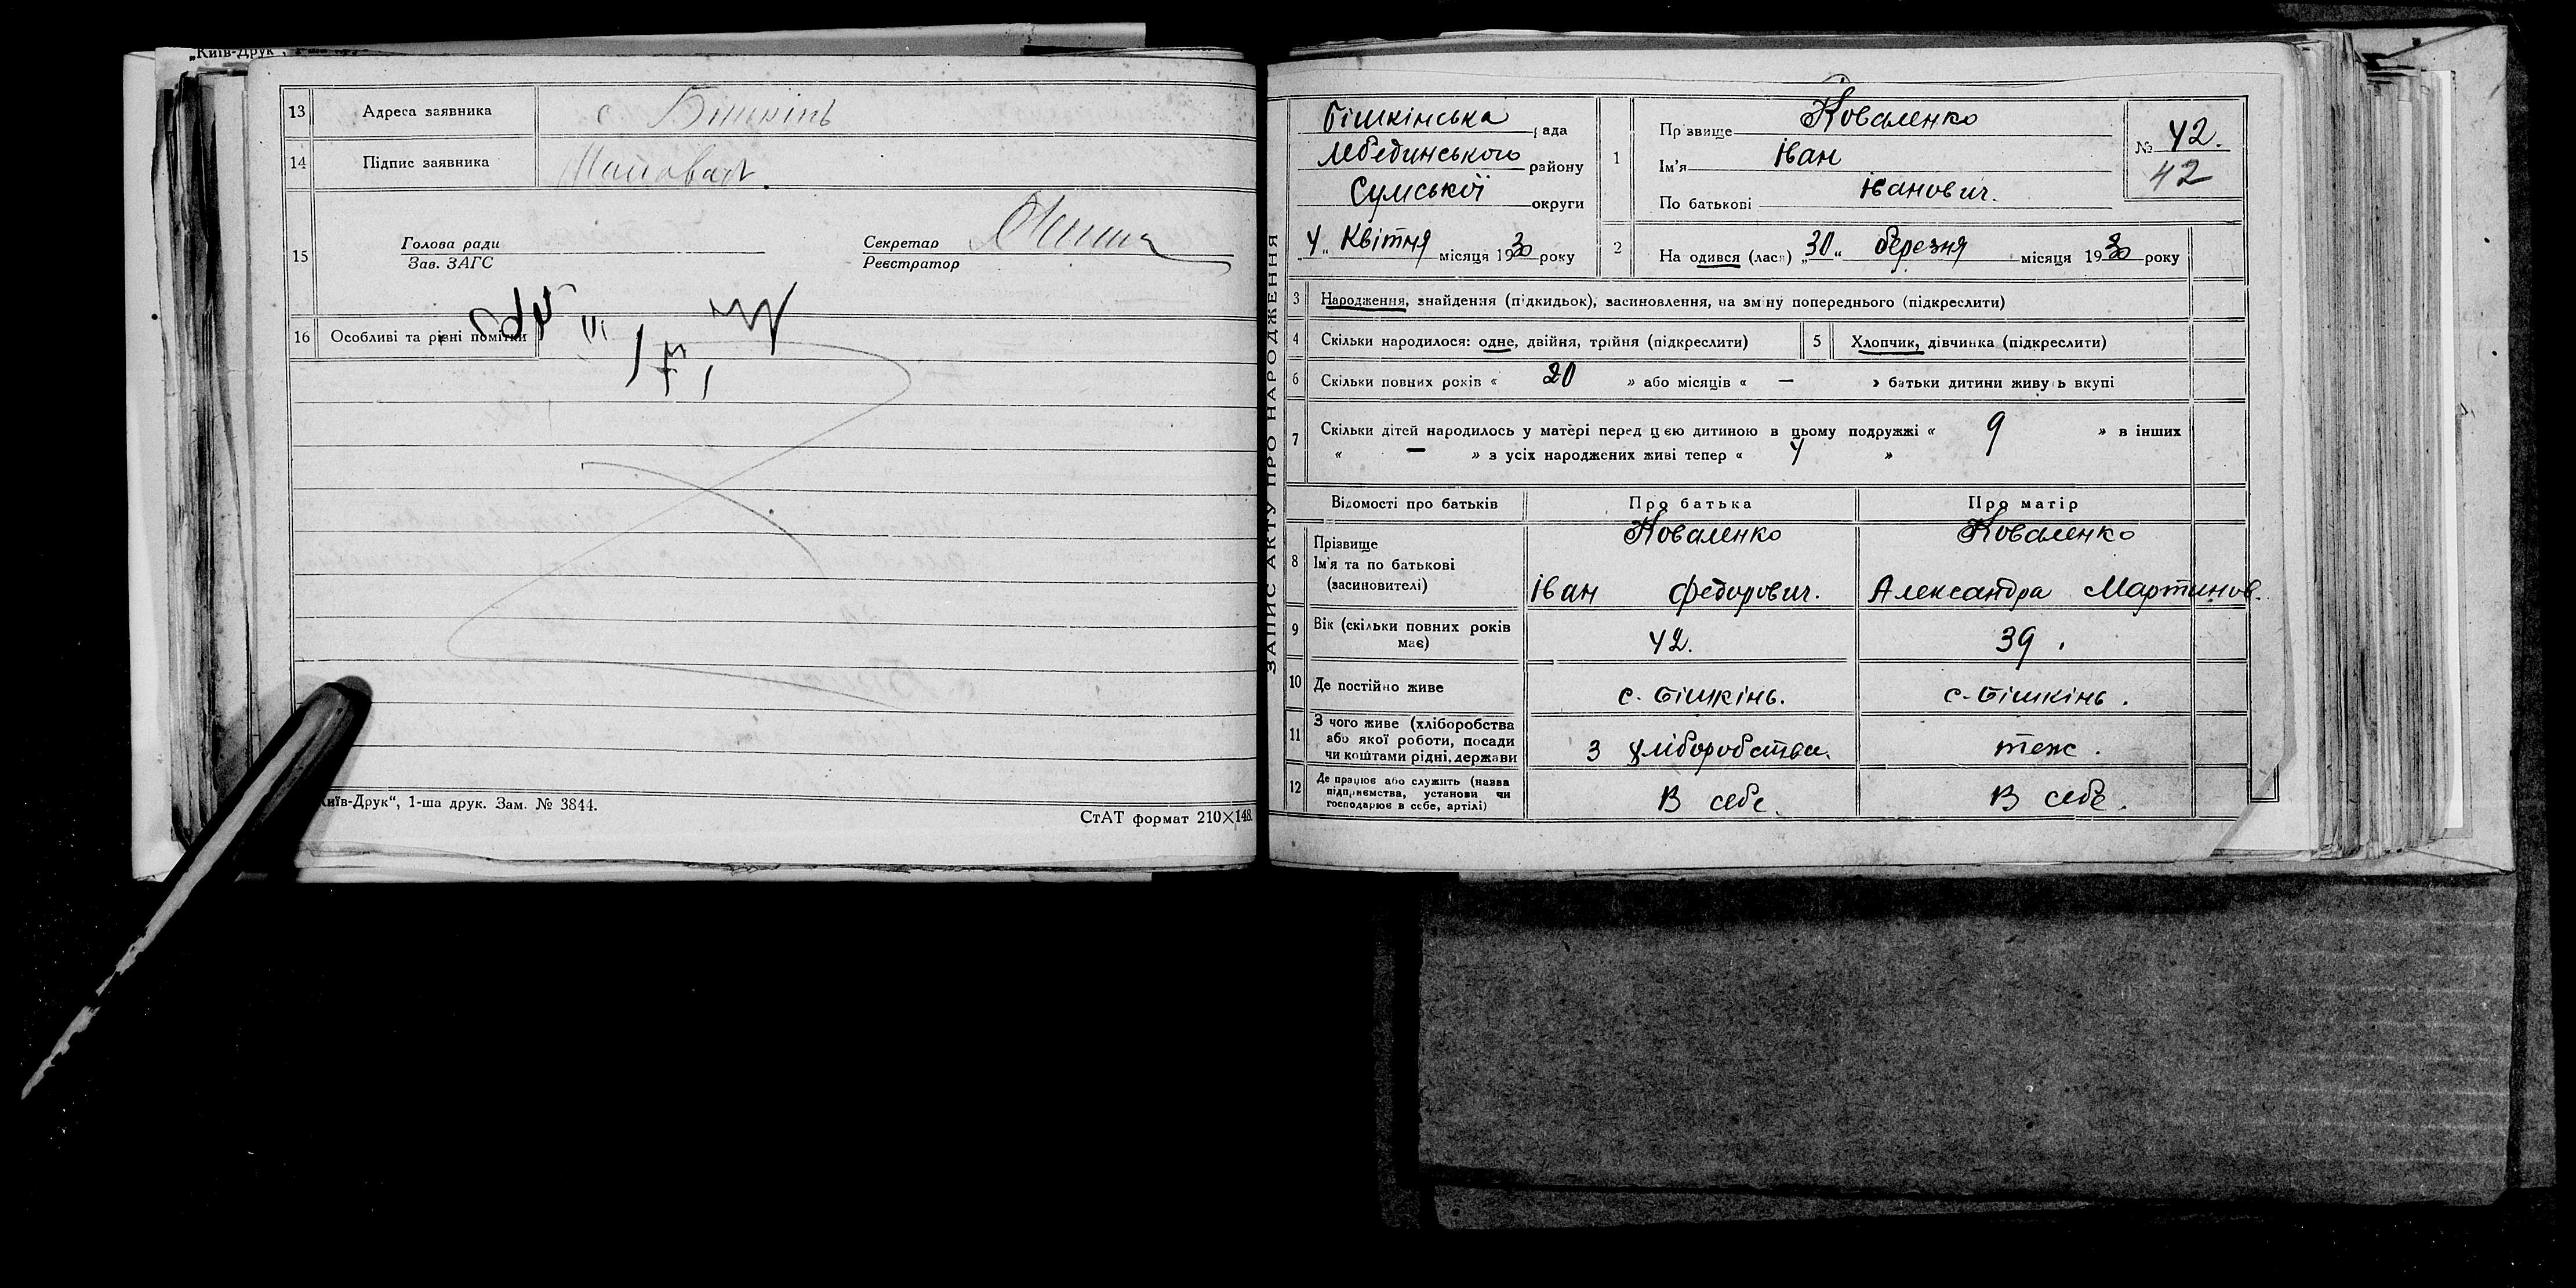 „Київ-Друк",
13 Адреса заявника с Бішкінь
14 Підпис заявника
15 Голова ради
Зав. ЗАГС
Секретар
Реєстратор
16 Особливі та різні помітки
Київ-Друк“, 1-ша друк. Зам. № 3844.
СтАТ формат 210×148.
ЗАПИС АКТУ ПРО НАРОДЖЕННЯ
Бішкінська рада
Лебединського району
Сумської округи
4 „ Квітня місяця 1930 року
1 Прізвище Коваленко
Ім'я Іван
По батькові Іванович.
№ 42.
42
2 На одився (лася) „30“ березня місяця 1930 року
3 Народження, знайдення (підкидьок), засиновлення, на зміну попереднього (підкреслити)
4 Скільки народилося: одне, двійня, трійня (підкреслити)
5 Хлопчик, дівчинка (підкреслити)
6 Скільки повних років « 20 » або місяців « — » батьки дитини живуть вкупі
7 Скільки дітей народилось у матері перед цією дитиною в цьому подружжі « 9 » в інших
« — » з усіх народжених живі тепер « 4 »
Відомості про батьків Про батька Про матір
8 Прізвище
Ім'я та по батькові
(засиновителі)
Коваленко
Іван Федорович.
Коваленко
Александра Мартинов.
9 Вік (скільки повних років
має)
42. 39.
10 Де постійно живе с. Бішкінь. с. Бішкінь.
11 З чого живе (хліборобства
або якої роботи, посади
чи коштами рідні, держави
З хліборобства. теж.
12 Де працює або служить (назва
підприємства, установи чи
господарює в себе, артілі)
В себе. В себе.